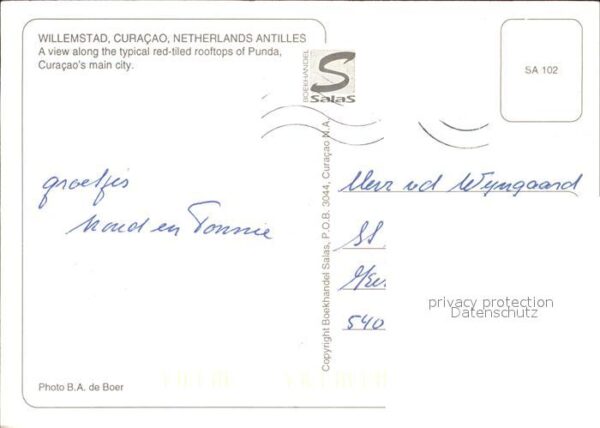 WILLEMSTAD, CURAÇAO, NETHERLANDS ANTILLES
A view along the typical red-tiled rooftops of Punda,
Curaçao's main city.
BOEKHANDEL
S
SalaS
SA 102
groetjes
en Tonnie
vd Wijngaard
540
Copyright Boekhandel Salas, P.O.B. 3044, Curaçao N.A.
privacy protection
Datenschutz
Photo B.A. de Boer